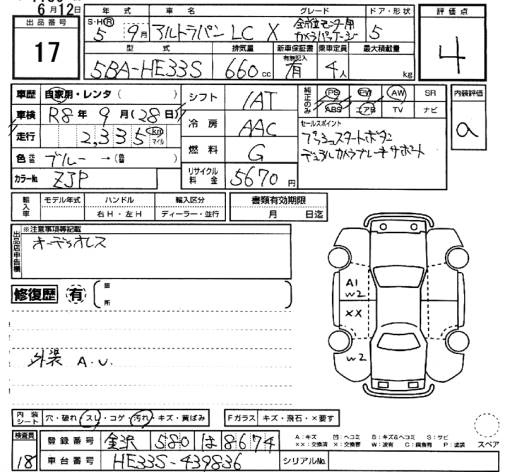 6月12日
出品番号 17
年式 S・H・R 5年 9月
車名 アルトラパン LC X
グレード 全方位モニター用カメラパッケージ
ドア・形状 5
評価点 4
型式 5BA-HE33S
排気量 660cc
新車保証書 有無記入 有
乗車定員 4人
最大積載量 kg
車歴 自家用・レンタ( )
車検 R8年 9月(28日)
走行 2,335 Km マイル
色 (色替) ブルー → (色)
カラーNo. ZJP
シフト IAT
冷房 AAC
燃料 G
リサイクル料金 5670円
純正 PS PW AW SR
ABS エアB TV ナビ
セールスポイント
プッシュスタートボタン
デュアルカメラブレーキサポート
内装評価 a
輸入車 モデル年式 ハンドル 右H・左H 輸入区分 ディーラー・並行
書類有効期限 月 日迄
出品店申告欄 ※注意事項等記載
オーディオレス
修復歴 有 箇所
外装 A.U.
A1
W2
XX
W2
内装シート 穴・破れ スレ・コゲ 汚れ・キズ・黄ばみ
Fガラス キズ・飛石・×要す
検査員 18
登録番号 金沢 580 は 8674
車台番号 HE33S-439836
シリアルNo.
A:キズ
××:交換済
スペア